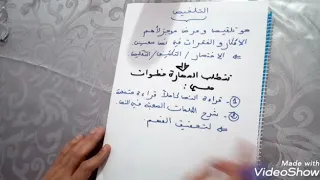 التلخيص
هو تلخيص وعرض موجز لأهم
الأفكار والفقرات في نص معين.
الاختصار / التلخيص / التقليص
تتطلب المهارة خطوات
هي:
① قراءة النص كاملا قراءة متمعنة
② شرح الكلمات الصعبة في النص
لتعميق الفهم.
Made with
VideoShow